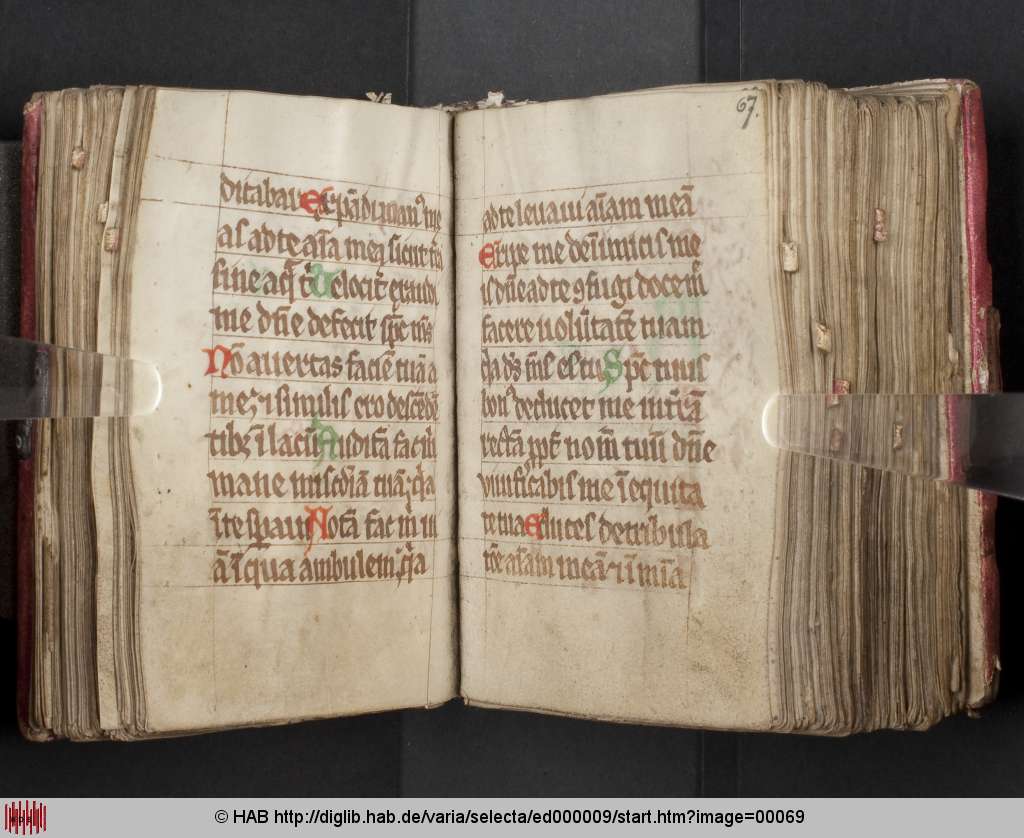 ditabar Expādi man⁹ me
as ad te aīa mea sicut tr̄a
sine aq̄ t̄ Velocit̄ exaudi
me dn̄e defecit sp̄c m̄s
Nō avertas faciē tuā a
me ⁊ similis ero descēdē
tib⁊ ī lacū Auditā fac m̄
mane miscdiā tuā q̄a
ī te speravi Notā fac m̄ ui
ā ī qua ambulem q̄a
67.
ad te levavi aīam meā
Eripe me de īimicis me
is dn̄e ad te 9fugi doce m̄
facere volūtatē tuam
q̄a ds̄ m̄s es tu Sp̄c tuus
bon⁹ deducet me in tr̄ā
rectā ꝓpt̄ nom̄ tuū dn̄e
vivificabis me ī equita
te tua Educes de tribula
cōe aīam meā ⁊ ī mīa
© HAB http://diglib.hab.de/varia/selecta/ed000009/start.htm?image=00069